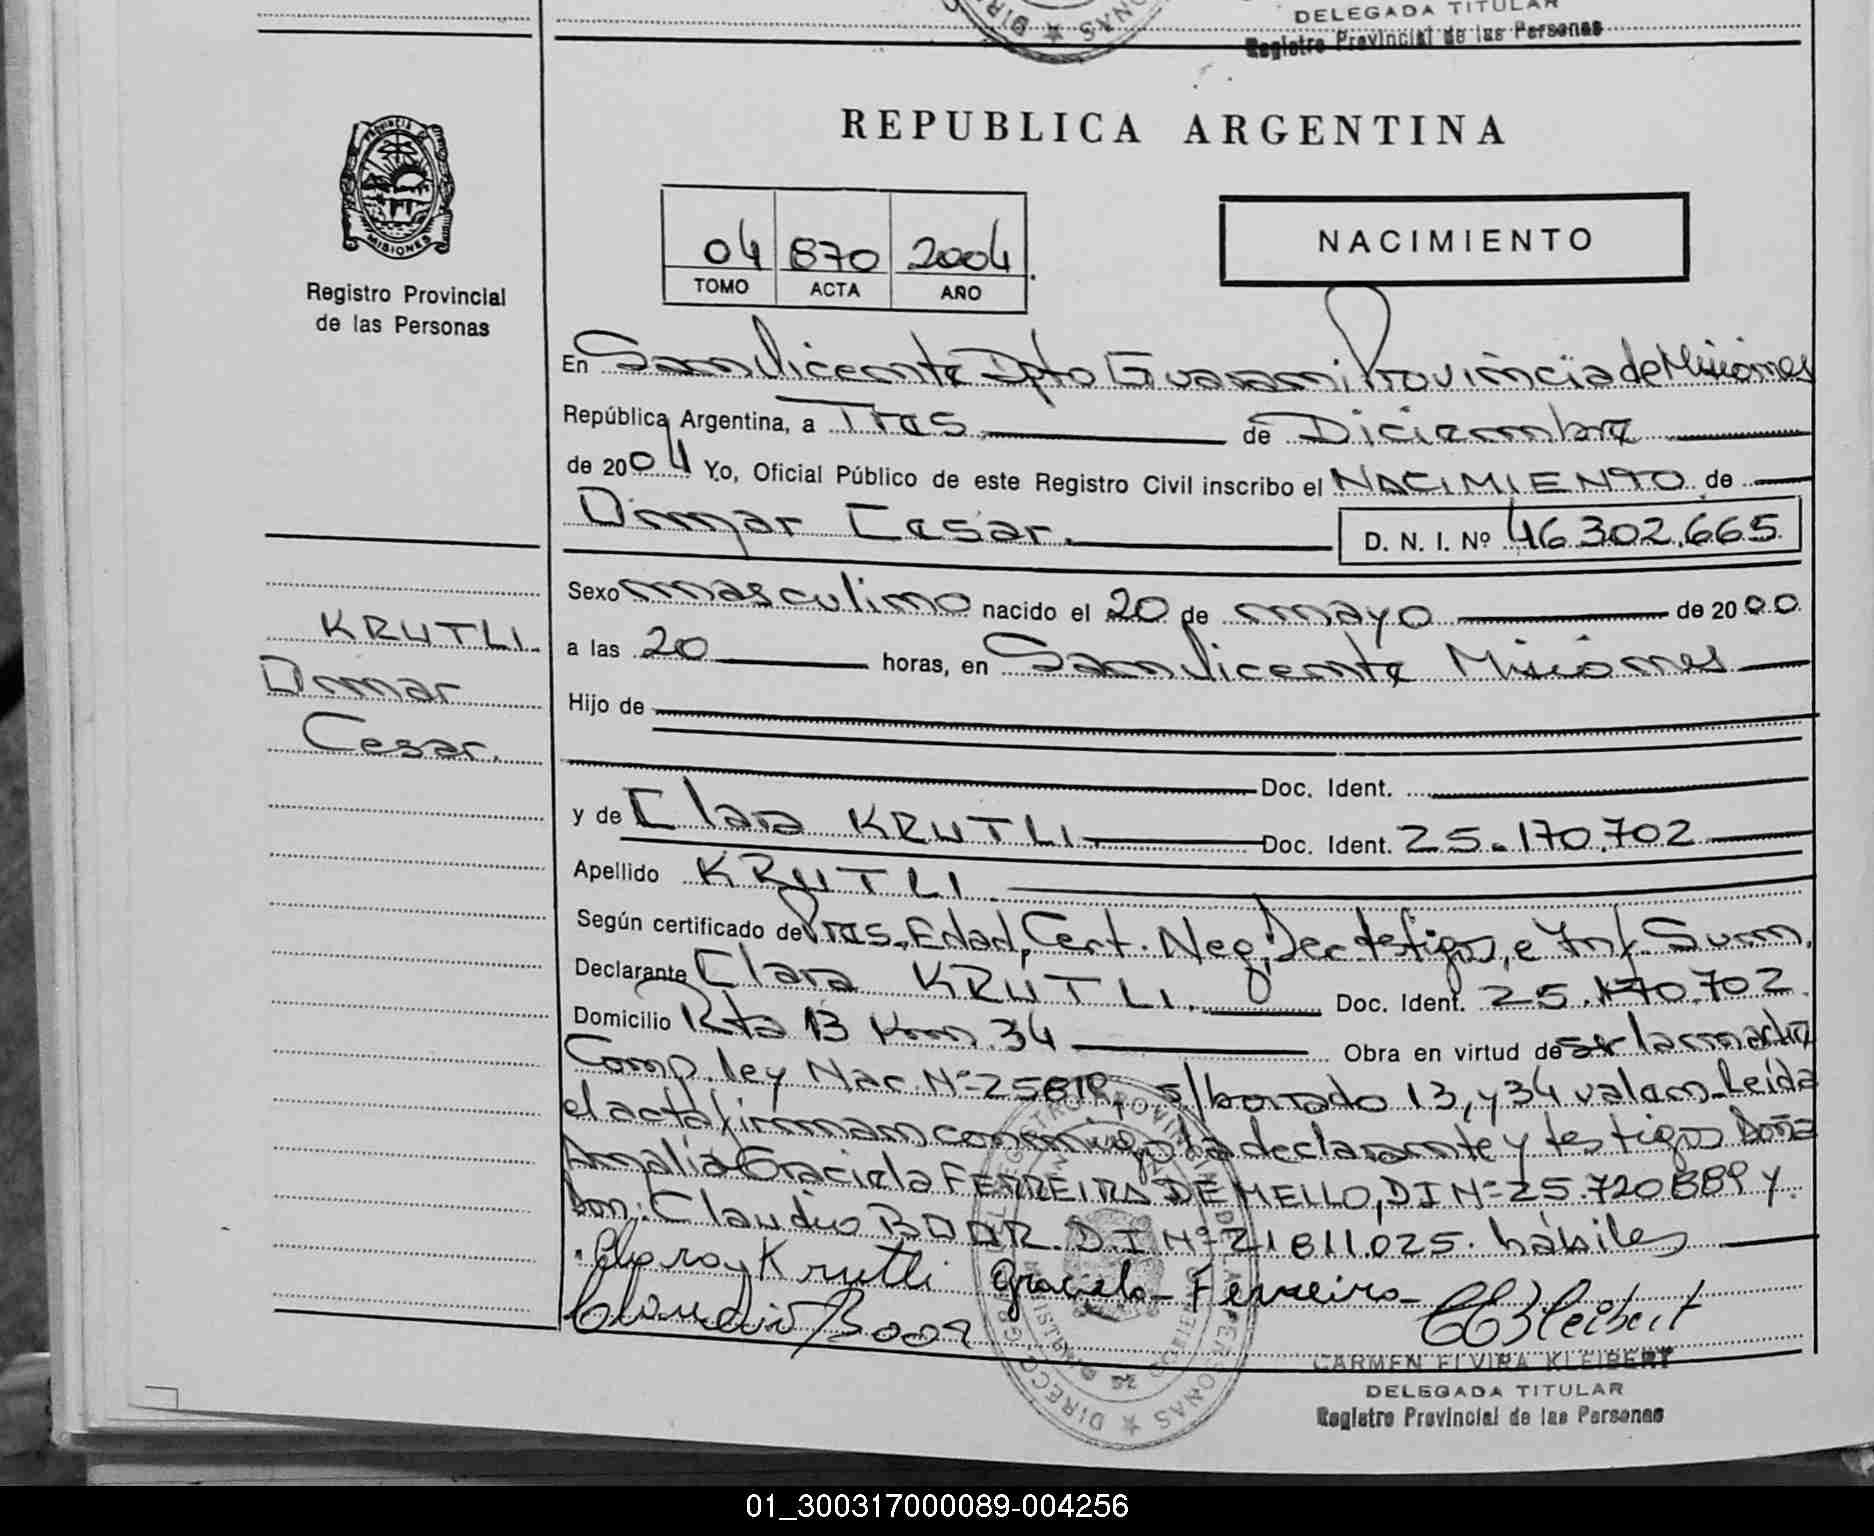 DELEGADA TITULAR
Registro Provincial de las Personas
REPUBLICA ARGENTINA
PROVINCIA DE
MISIONES
Registro Provincial
de las Personas
04 870 2004
TOMO ACTA AÑO
NACIMIENTO
En San Vicente Dpto Guarani Provincia de Misiones
República Argentina, a Tres de Diciembre
de 2004 Yo, Oficial Público de este Registro Civil inscribo el NACIMIENTO de
Dimar Cesar. D. N. I. Nº 46.302.665
Sexo masculino nacido el 20 de mayo de 2000
KRUTLI.
a las 20 horas, en San Vicente Misiones
Cesar.
Hijo de
Doc. Ident.
y de Clara KRUTLI Doc. Ident. 25.170.702
Apellido KRUTLI
Según certificado de Pres. Edad, Cert. Neg, Dec testigos, e Inf. Sum.
Declarante Clara KRUTLI. Doc. Ident. 25.170.702
Domicilio Rta 13 Km. 34 Obra en virtud de ser la madre
Comp. ley Nac. Nº 25819, s/borrado 13, y 34 valen. Leída
el acta firman conmigo la declarante y testigos Doña
Amalia Graciela FERREIRA DE MELLO, DI Nº 25.720889 y
Don: Claudio BOAR. D.I Nº 21811.025. hábiles
Clara Krutli Graciela Ferreira
Claudio Booa CEKleibert
CARMEN ELVIRA KLEIBERT
DELEGADA TITULAR
Registro Provincial de las Personas
01_300317000089-004256